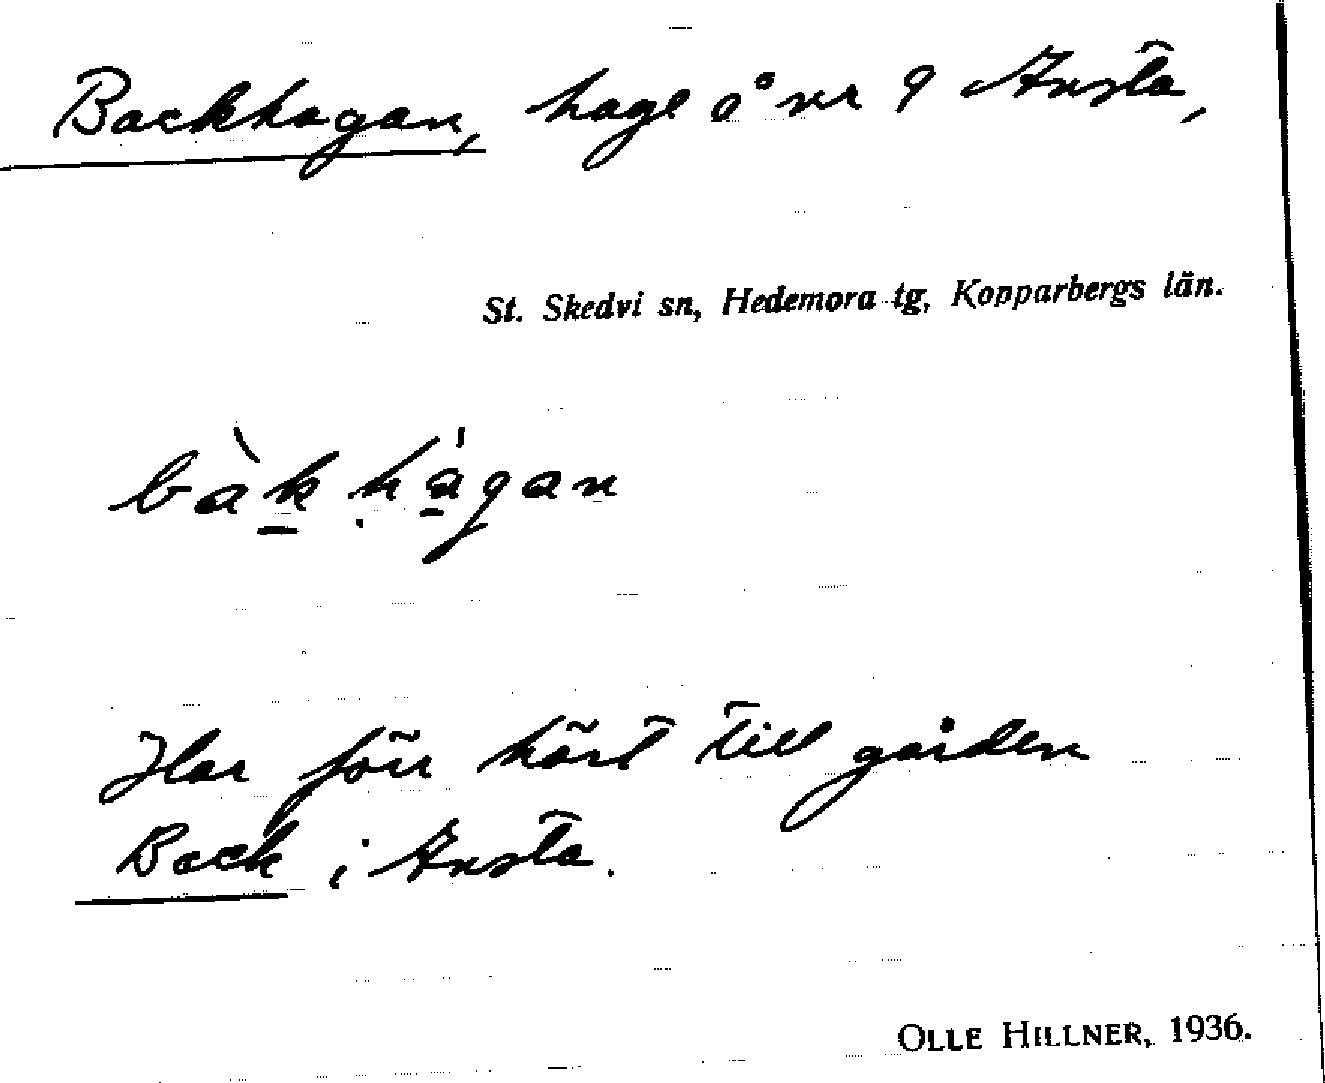 Backhagan, hage å nr 9 Ansta,
St. Skedvi sn, Hedemora tg, Kopparbergs län.
bàk hágan
Har förr hört till gården
Back i Ansta.
OLLE HILLNER, 1936.